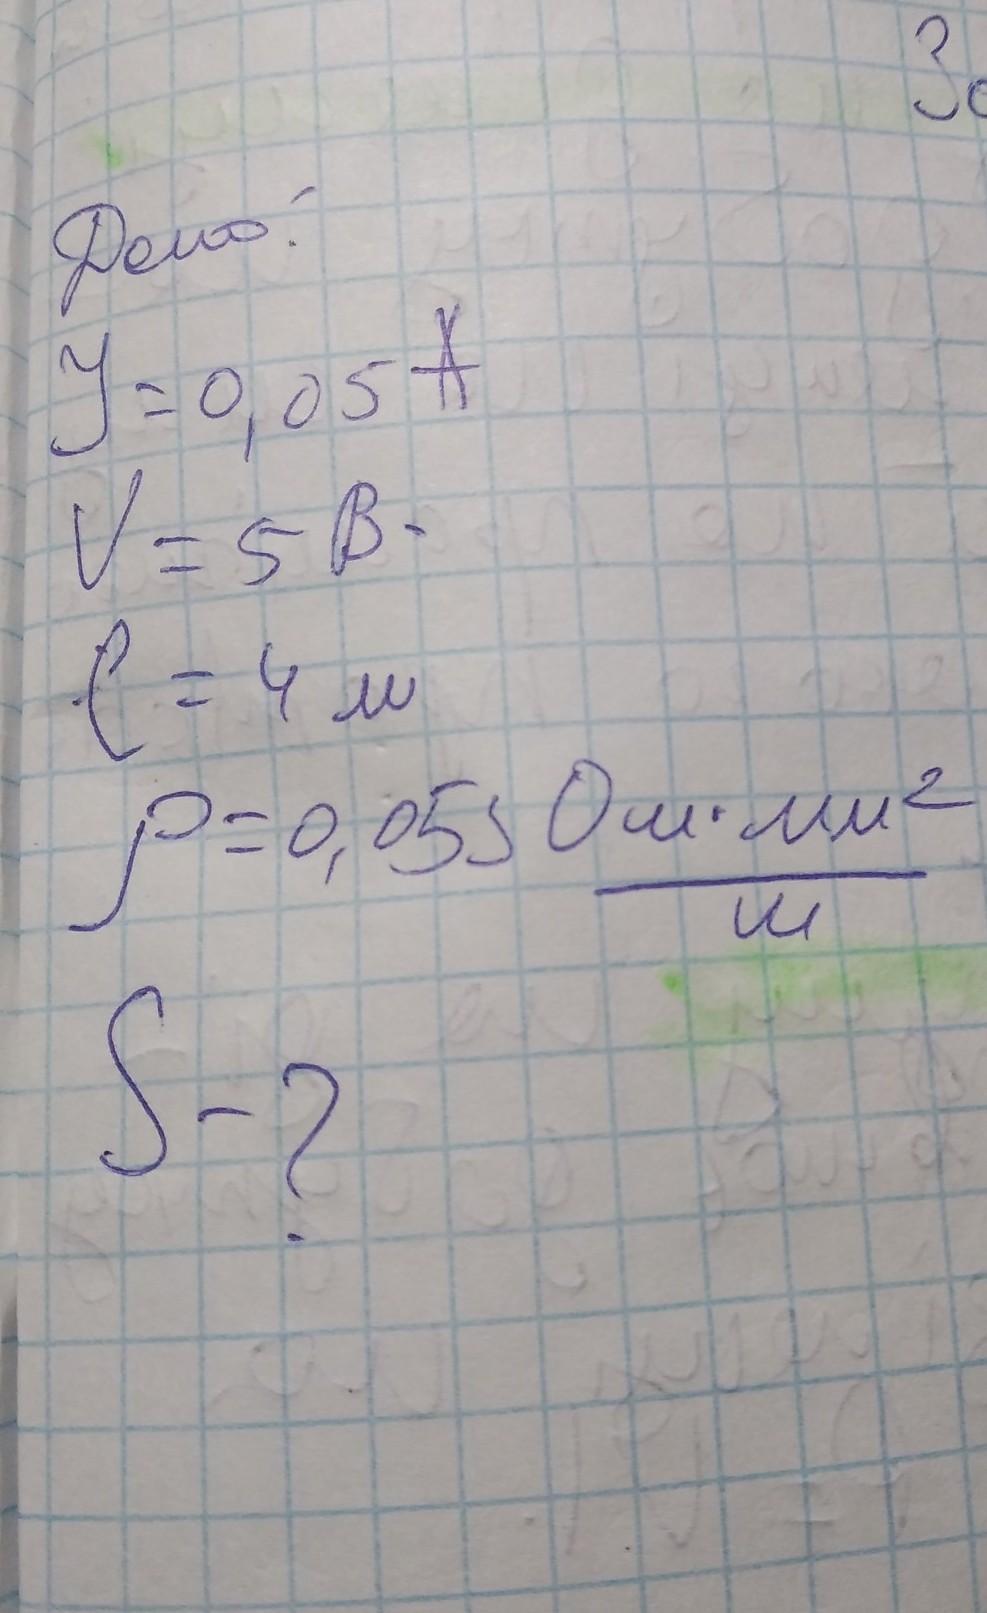 За
Дано:
I = 0,05 А
V = 5 В.
l = 4 м
ρ = 0,055 Ом·мм²
м
S - ?